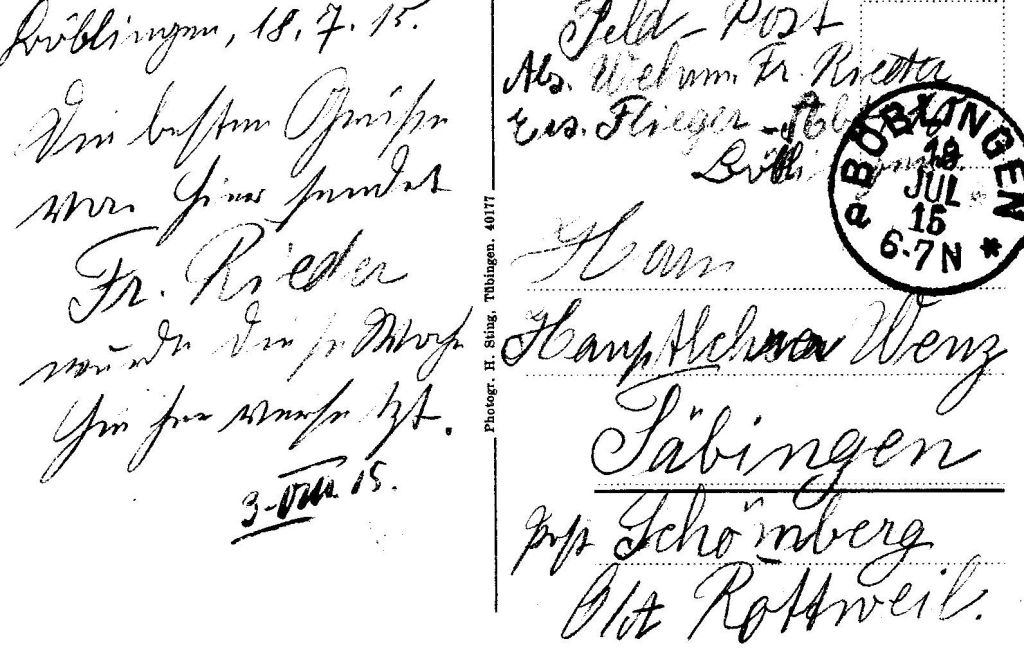 Böblingen, 18.7.15.
Die besten Grüße
von hier sendet
Fr. Rieder
wurde diese Woche
hierher versetzt.
3-VIII. 15.
Photogr. H. Sting, Tübingen. 40177
Feld-Post
Abs. Wehrm. Fr. Rieder
Ers. Flieger-Abtlg.
Böblingen
BÖBLINGEN
18
JUL
15
6-7N
a *
Herrn
Hauptlehrer Wenz
Täbingen
Post Schömberg
O/A Rottweil.